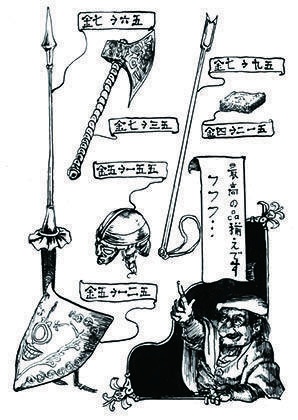 金七→六五
金七→三五
金七→九五
金四→二一五
金五→一五五
金五→一二五
最高の品揃えです
フフフ…